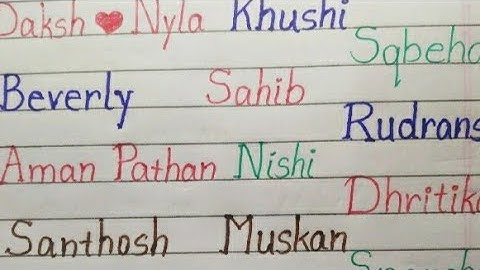 Daksh ❤ Nyla Khushi
Sqbeha
Beverly Sahib
Rudrans
Aman Pathan Nishi
Dhritika
Santhosh Muskan